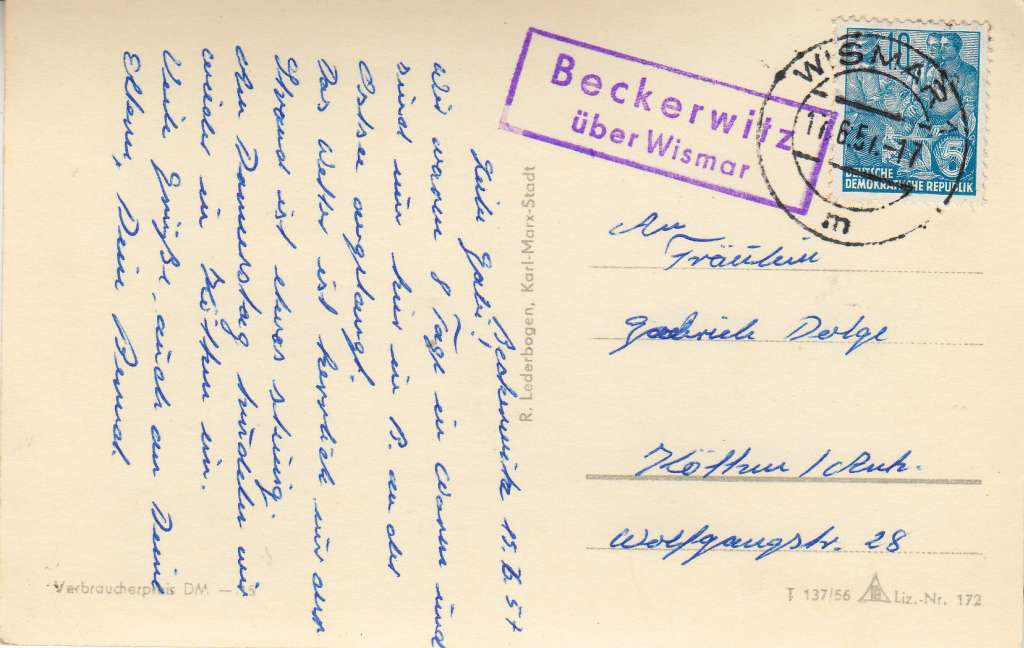 Beckerwitz 15.6.57
Liebe Gabi!
Wir waren 8 Tage in Waren und
sind nun hier in B. an der
Ostsee angelangt.
Das Wetter ist herrlich nur der
Strand ist etwas steinig.
Am Donnerstag trudeln wir
wieder in Köthen ein.
Viele Grüße, auch an Deine
Eltern, Dein
Verbraucherpreis DM
R. Lederbogen, Karl-Marx-Stadt
Beckerwitz
über Wismar
WISMAR
m
10
5
DEUTSCHE
DEMOKRATISCHE REPUBLIK
An
Fräulein
Gabriele Dolge
Köthen / Anh.
Wolfgangstr. 28
T 137/56 Liz.-Nr. 172